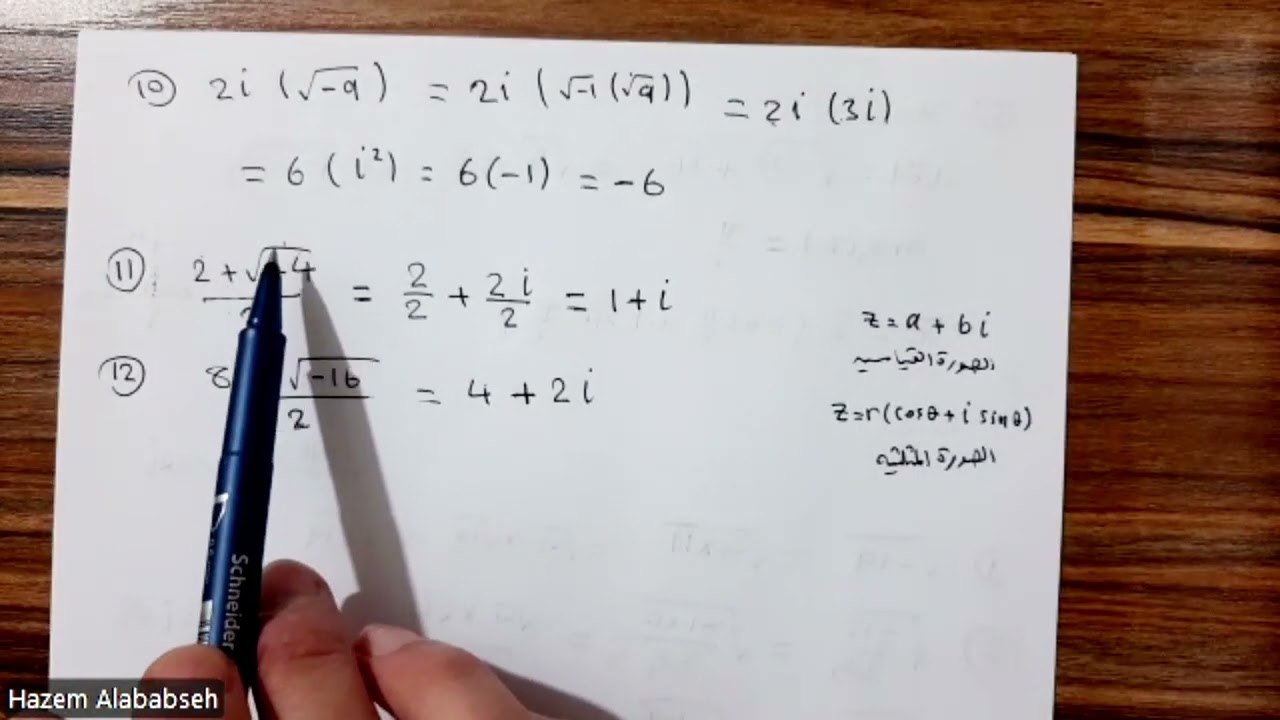 ⑩ 2i (√-9) = 2i (√-1 (√9)) = 2i (3i)
= 6 ( i²) = 6(-1) = -6
⑪ 2 + √-4 = 2/2 + 2i/2 = 1 + i
⑫ 8 √-16 / 2 = 4 + 2i
z = a + bi
الصورة القياسيه
z = r(cosθ + i sinθ)
الصورة المثلثيه
Schneider
Hazem Alababseh